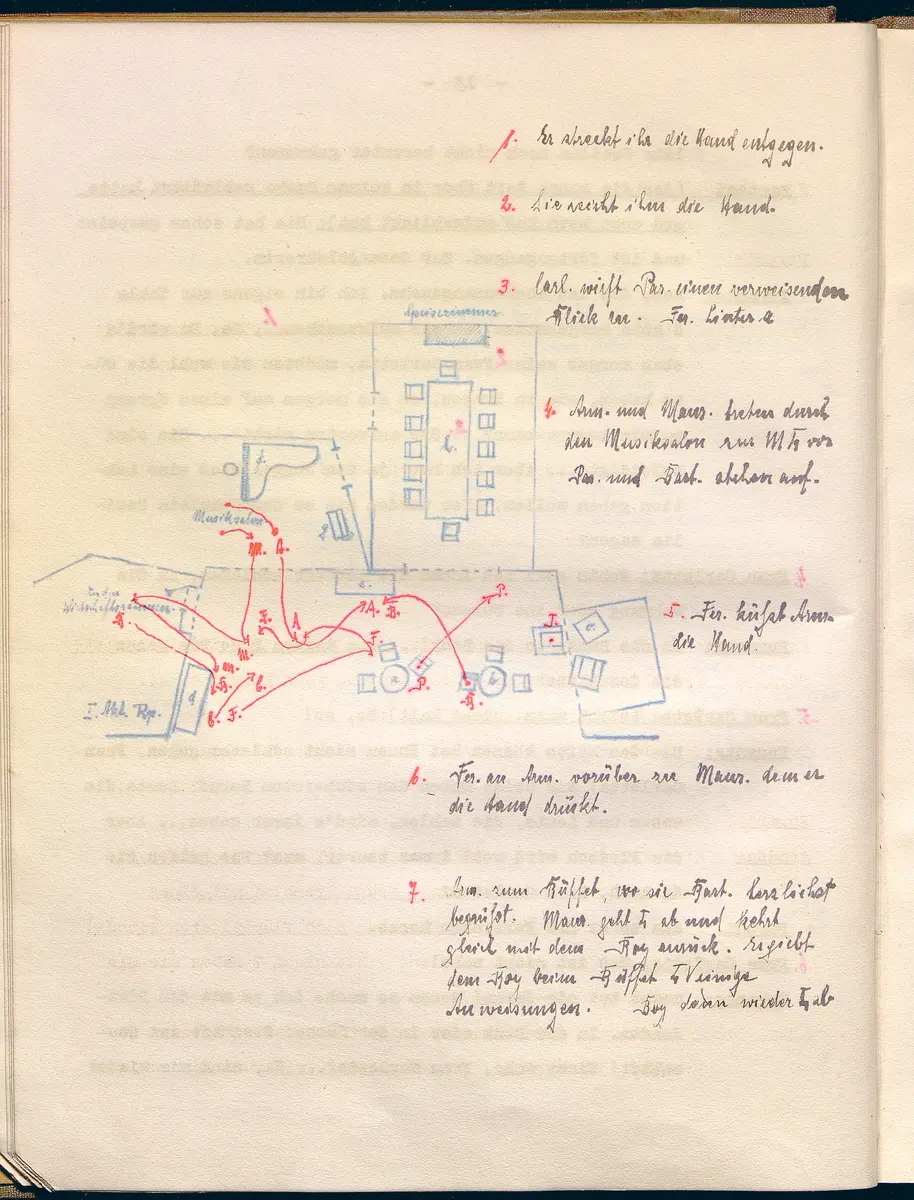 1. Er streckt ihr die Hand entgegen.
2. Sie reicht ihm die Hand.
3. Carl. wirft Par. einen verweisenden
Blick zu. Fer. hinter a
Speisezimmer
4. Arm. und Maur. treten durch
den Musiksalon zur M vor
Par. und Bart. stehen auf.
Musiksalon
M. A.
5. Fer. küsst Arm.
die Hand.
I. Akt. Rp.
6. Fer. an Arm. vorüber zu Maur. dem er
die Hand drückt.
7. Arm. zum Büffet, wo sie Bart. herzlichst
begrüsst. Maur. geht ab und kehrt
gleich mit dem Boy zurück. Er giebt
dem Boy beim Büffet einige
Anweisungen. Boy dann wieder ab